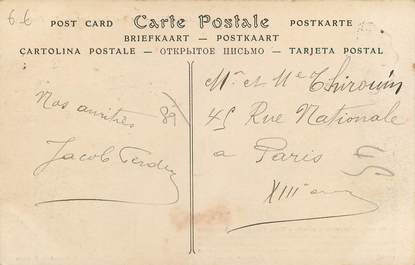 6-6
POST CARD Carte Postale POSTKARTE
BRIEFKAART — POSTKAART
CARTOLINA POSTALE — ОТКРЫТОЕ ПИСЬМО — TARJETA POSTAL
Nos amitiés
89
Jacob
Mr et Me Thirouin
45 Rue Nationale
a Paris
XIIIe